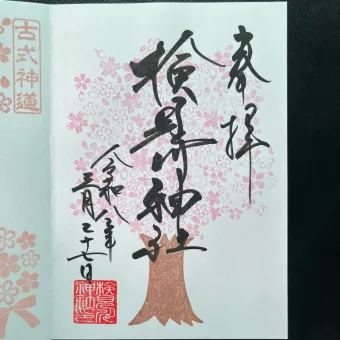 奉拝
検見川神社
令和八年
三月二十七日
古式神道